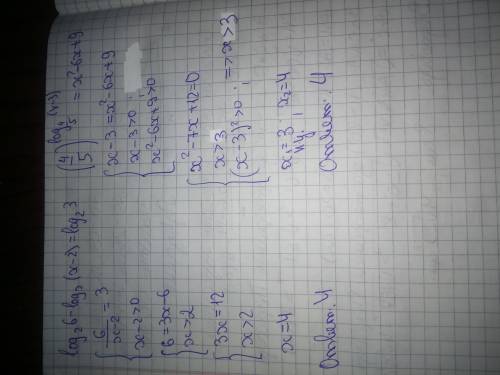 log₂6-log₂(x-2)=log₂3
{ 6/(x-2) = 3
{ x-2>0
{ 6=3x-6
{ x>2
{ 3x=12
{ x>2
x=4
Ответ: 4
(4/5)^(log_(4/5)(x-3)) = x²-6x+9
{ x-3=x²-6x+9
{ x-3>0
{ x²-6x+9>0
{ x²-7x+12=0
{ x>3
{ (x-3)²>0 ; => x>3
x₁=3 ; x₂=4
н.у.
Ответ: 4